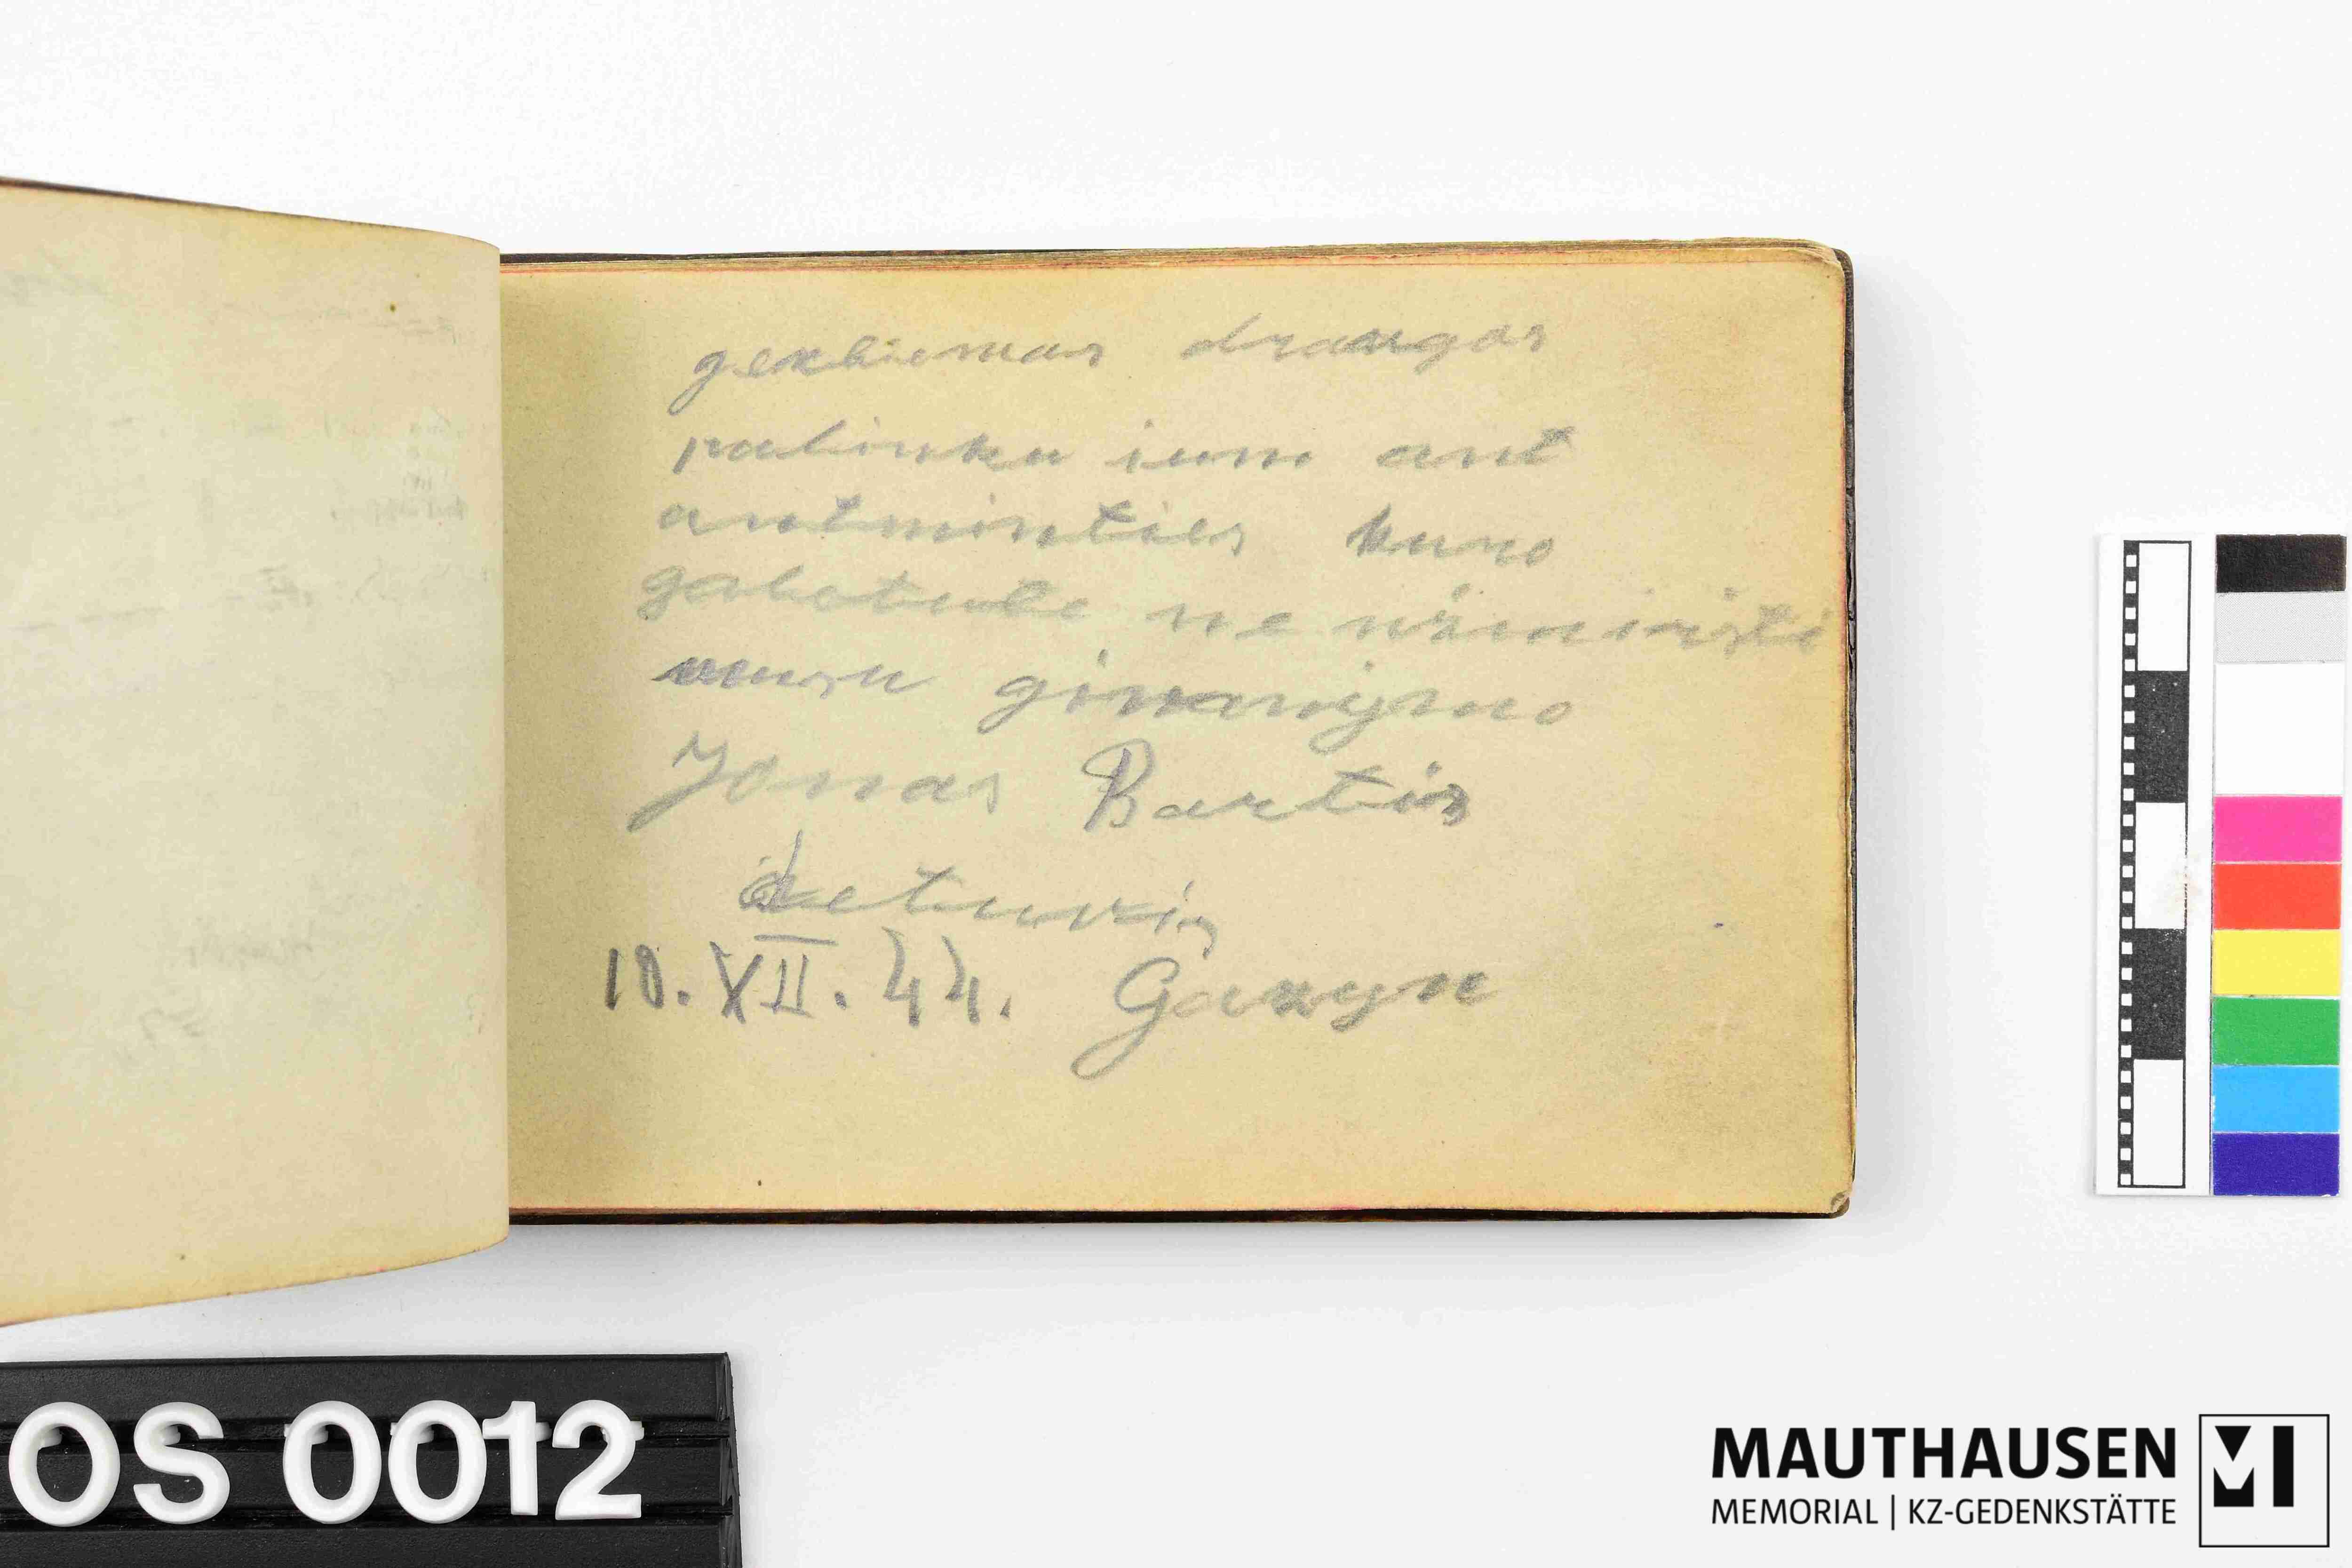 gerbiemas draugas
palinku ium ant
antminties kuro
galetube ne užmiršti
musu givanijmo
Jonas Bartis
Letuvis
10. XII. 44. Gaxyn
OS 0012
MAUTHAUSEN
MEMORIAL | KZ-GEDENKSTÄTTE